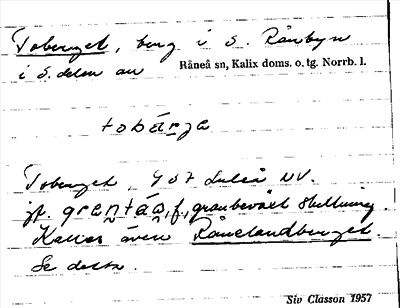 Toberget, berg i S. Rånbyn
i S. delen av Råneå sn, Kalix doms. o. tg. Norrb. l.
tobärjə
Toberget, Y07 Luleå NV.
jf. f, granbeväxt sluttning.
Kallas även Rånelandberget.
Se detta.
Siv Classon 1957